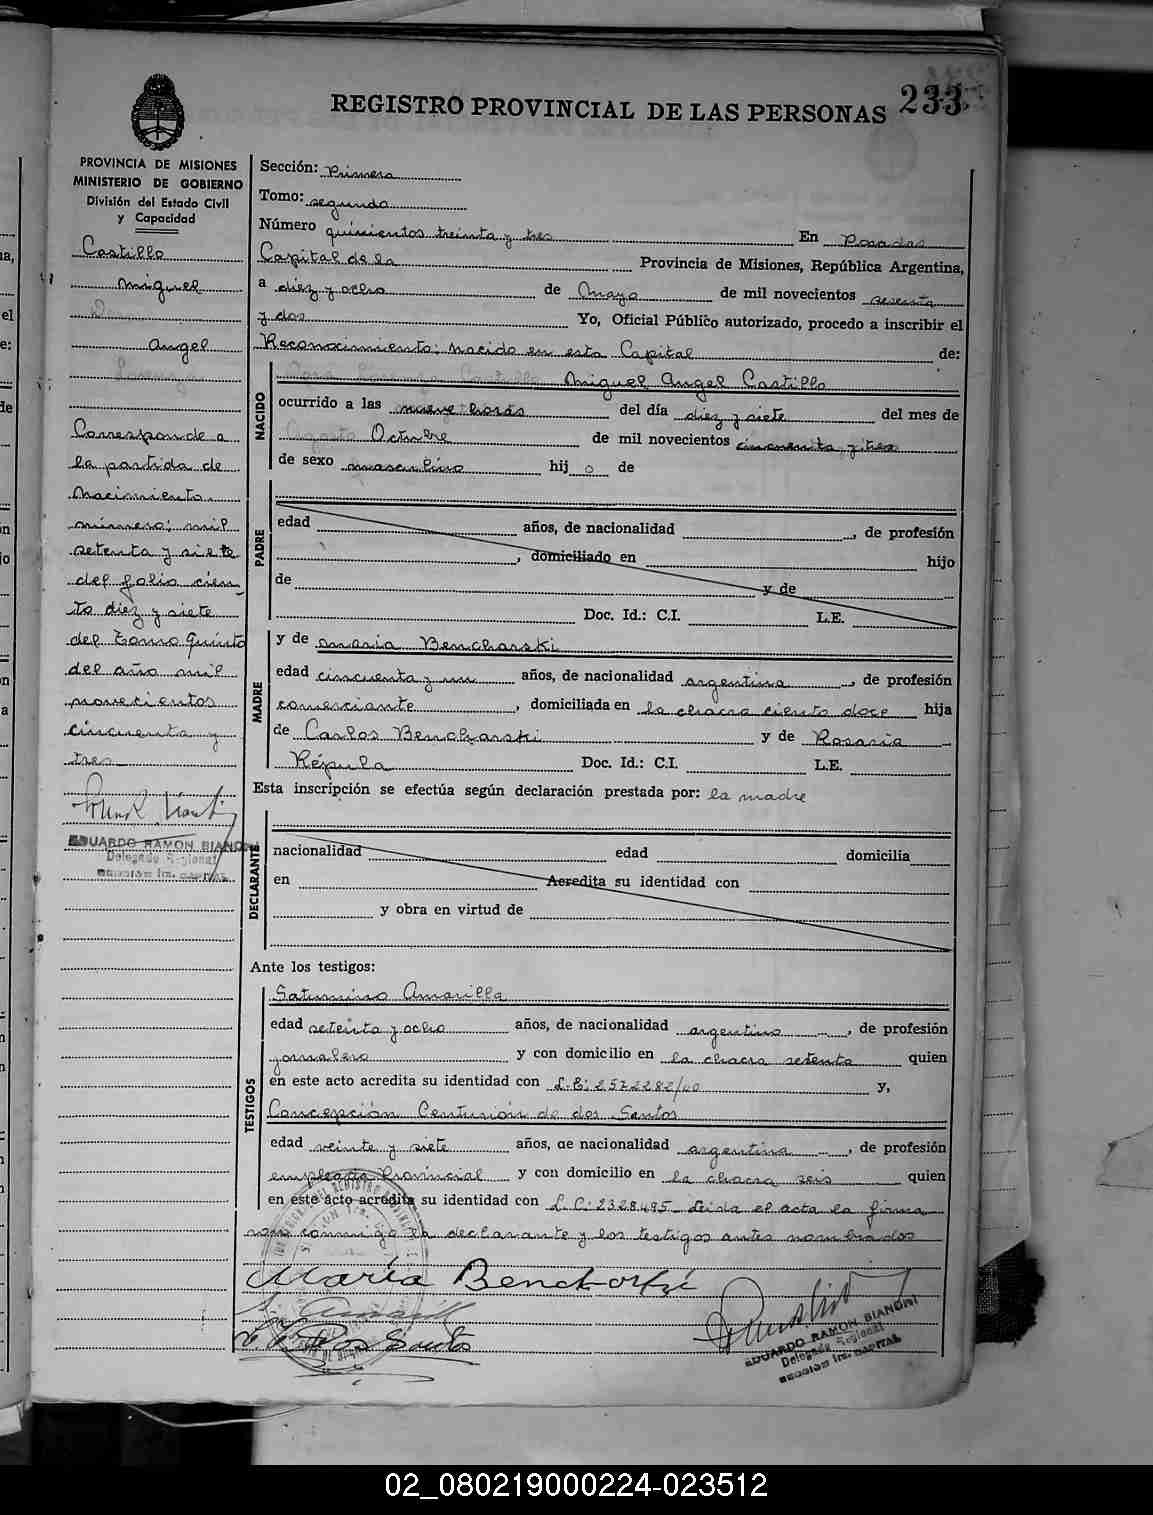 REGISTRO PROVINCIAL DE LAS PERSONAS
233
PROVINCIA DE MISIONES
MINISTERIO DE GOBIERNO
División del Estado Civil
y Capacidad
Castillo
Miguel
Angel
Corresponde a
la partida de
Nacimiento
número: mil
setenta y siete
del folio cien-
to diez y siete
del Tomo Quinto
del año mil
novecientos
cincuenta y
tres
EDUARDO RAMON BIANCHI
Delegado Regional
Sección: Primera
Tomo: segundo
Número quinientos treinta y tres En Posadas
Capital de la Provincia de Misiones, República Argentina,
a diez y ocho de Mayo de mil novecientos sesenta
y dos Yo, Oficial Público autorizado, procedo a inscribir el
Reconocimiento: nacido en esta Capital de:
NACIDO
Miguel Angel Castillo
ocurrido a las nueve horas del día diez y siete del mes de
Octubre de mil novecientos cincuenta y tres
de sexo masculino hij o de
PADRE
edad años, de nacionalidad , de profesión
, domiciliado en hijo
de y de
Doc. Id.: C.I. L.E.
MADRE
y de María Bencharski
edad cincuenta y un años, de nacionalidad argentina, de profesión
comerciante, domiciliada en la chacra ciento doce hija
de Carlos Bencharski y de Rosaria
Répula Doc. Id.: C.I. L.E.
Esta inscripción se efectúa según declaración prestada por: la madre
DECLARANTE
nacionalidad edad domicilia
en Acredita su identidad con
y obra en virtud de
Ante los testigos:
TESTIGOS
Saturnino Amarilla
edad setenta y ocho años, de nacionalidad argentino, de profesión
jornalero y con domicilio en la chacra setenta quien
en este acto acredita su identidad con L.E: 2572282/40 y,
Concepción Centurión de dos Santos
edad veinte y siete años, de nacionalidad argentina, de profesión
empleada Provincial y con domicilio en la chacra seis quien
en este acto acredita su identidad con L.C: 2328495 Leída el acta la firma
conmigo la declarante y los testigos antes nombrados
María
Dos Santos
EDUARDO RAMON BIANCHI
Delegado Regional
02_080219000224-023512